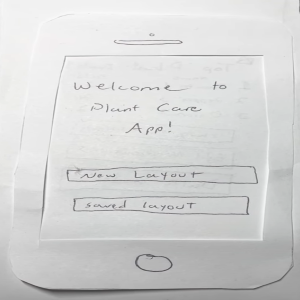 Welcome to
Plant Care
App!
New Layout
saved layout